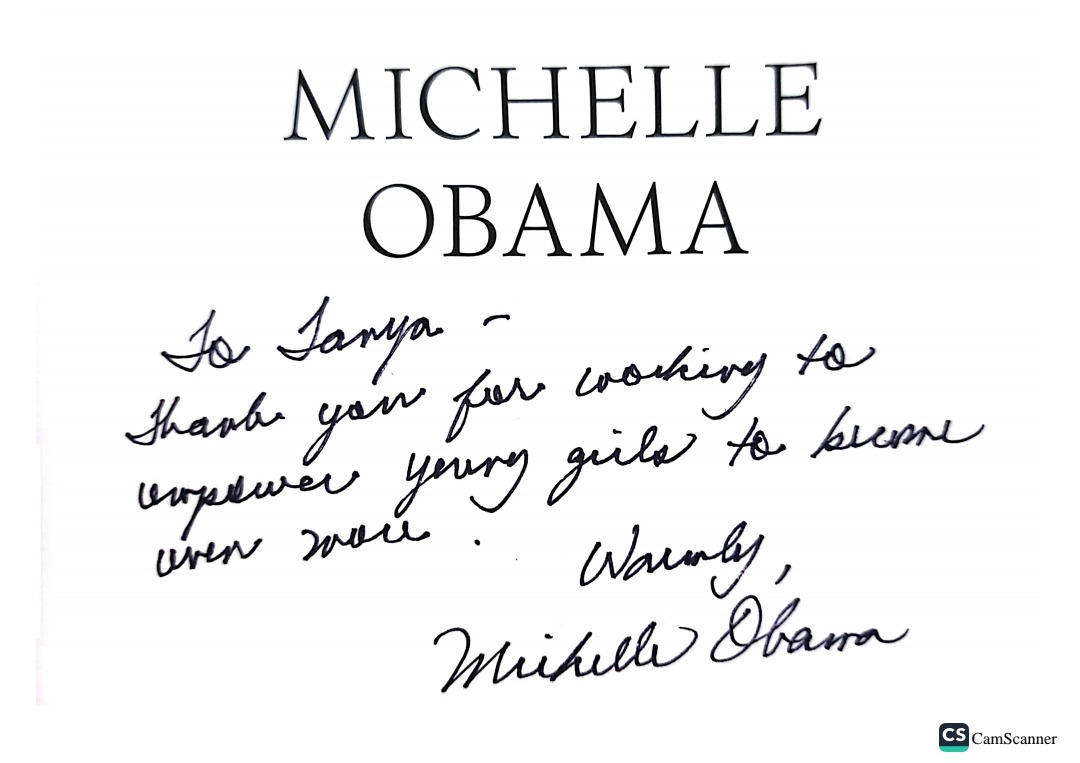 MICHELLE
OBAMA
To Tanya -
Thank you for working to
empower young girls to become
even more.
Warmly,
Michelle Obama
CS CamScanner